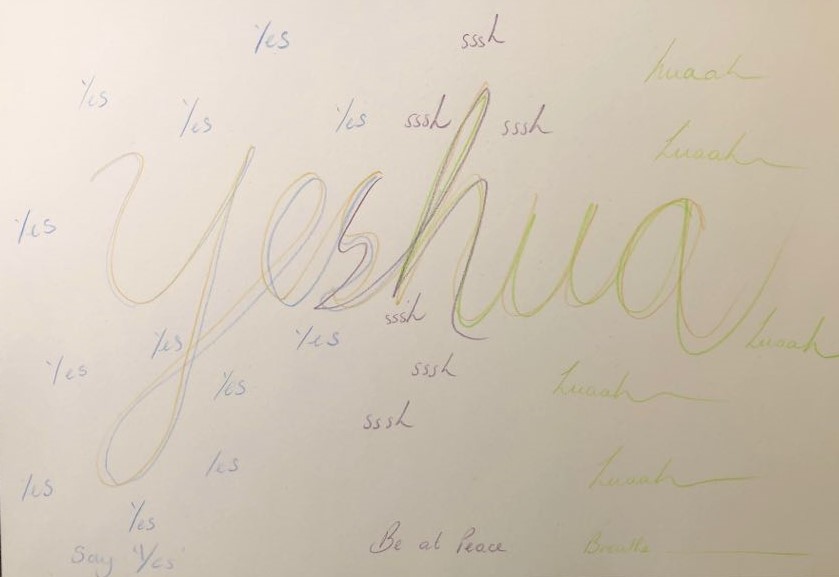 Yes sssh
huaah
Yes
Yes Yes sssh sssh
huaah
Yeshua
Yes
sssh
huaah
Yes Yes
Yes sssh
Yes huaah
sssh
Yes huaah
Yes
Yes
Say 'Yes' Be at Peace Breathe